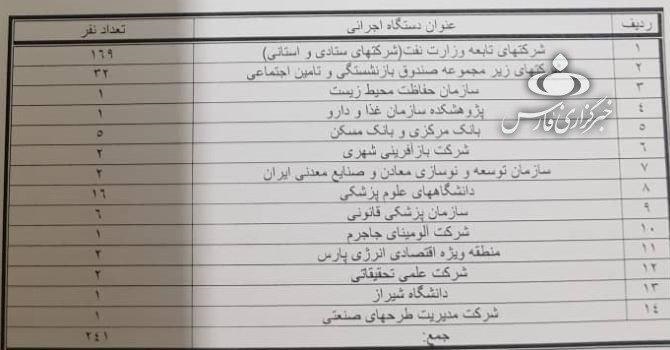 ردیف عنوان دستگاه اجرائی تعداد نفر
۱ شرکتهای تابعه وزارت نفت(شرکتهای ستادی و استانی) ۱۶۹
۲ کتهای زیر مجموعه صندوق بازنشستگی و تامین اجتماعی ۳۲
۳ سازمان حفاظت محیط زیست ۱
۴ پژوهشکده سازمان غذا و دارو ۱
۵ بانک مرکزی و بانک مسکن ۵
۶ شرکت بازآفرینی شهری ۲
۷ سازمان توسعه و نوسازی معادن و صنایع معدنی ایران ۲
۸ دانشگاههای علوم پزشکی ۱۶
۹ سازمان پزشکی قانونی ۶
۱۰ شرکت آلومینای جاجرم ۱
۱۱ منطقه ویژه اقتصادی انرژی پارس ۲
۱۲ شرکت علمی تحقیقاتی ۲
۱۳ دانشگاه شیراز ۱
۱۴ شرکت مدیریت طرحهای صنعتی ۱
جمع: ۲۴۱
خبرگزاری فارس